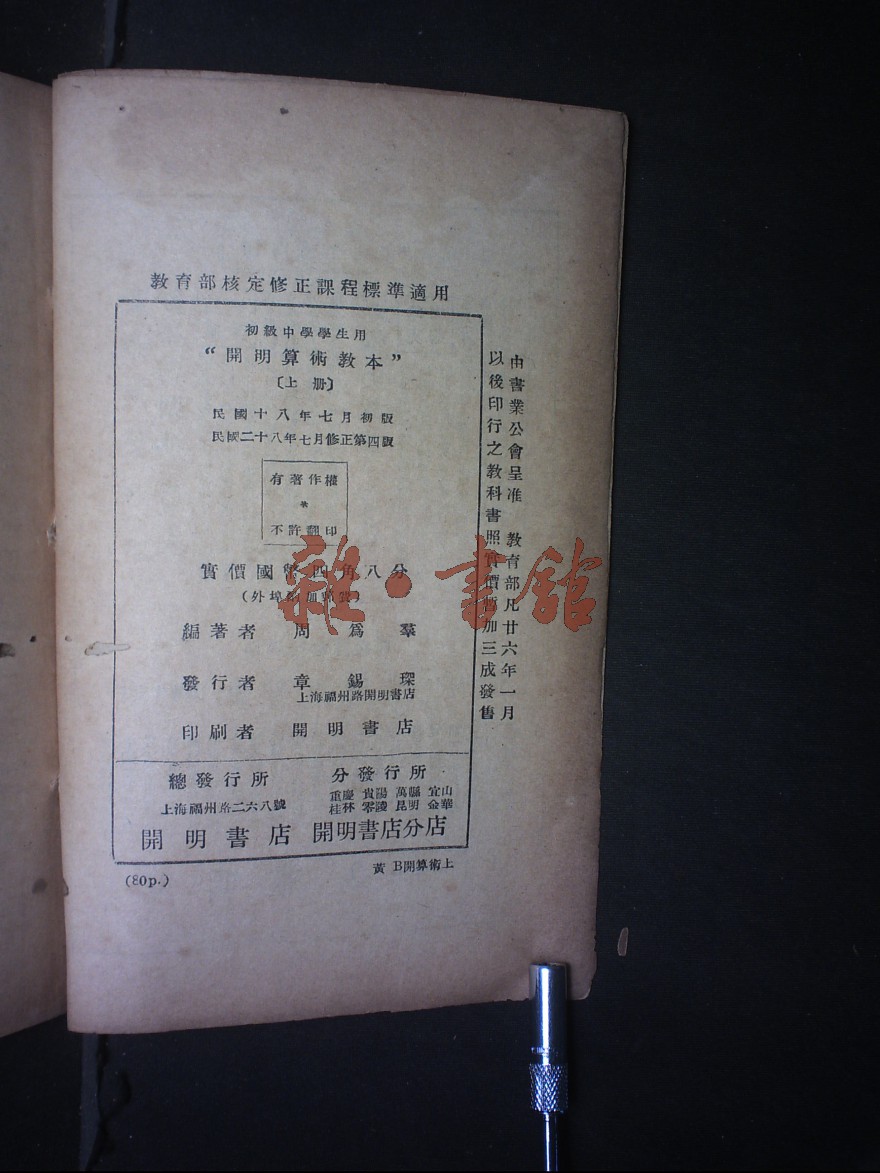 教育部核定修正課程標準適用
初級中學學生用
“開明算術教本”
〔上册〕
民國十八年七月初版
民國二十八年七月修正第四版
有著作權
*
不許翻印
實價國幣四角八分
編著者 周爲羣
發行者 章錫琛
上海福州路開明書店
印刷者 開明書店
總發行所
上海福州路二六八號
開明書店
分發行所
重慶 貴陽 萬縣 宜山
桂林 零陵 昆明 金華
開明書店分店
由書業公會呈准 教育部凡廿六年一月
以後印行之教科書照實價暫加三成發售
(80p.)
黃 B開算術上
雜·書館